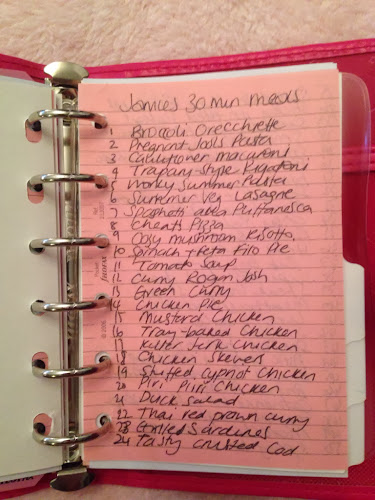 Jamies 30 min meals
1 Broccoli Orecchiette
2 Pregnant Jools Pasta
3 Cauliflower macaroni
4 Trapani-style Rigatoni
5 Wonky Summer Pasta
6 Summer Veg Lasagne
7 Spaghetti alla Puttanesca
8 Cheats Pizza
9 Oozy mushroom Risotto.
10 Spinach + Feta Filo Pie
11 Tomato Soup
12 Curry Rogan Josh
13 Green Curry
14 Chicken Pie
15 Mustard Chicken
16 Tray-baked Chicken
17 Killer Jerk Chicken
18 Chicken Skewers
19 Stuffed cypriot Chicken
20 Piri Piri Chicken
21 Duck salad
22 Thai red prawn curry
23 Grilled Sardines
24 Tasty crusted Cod
filofax